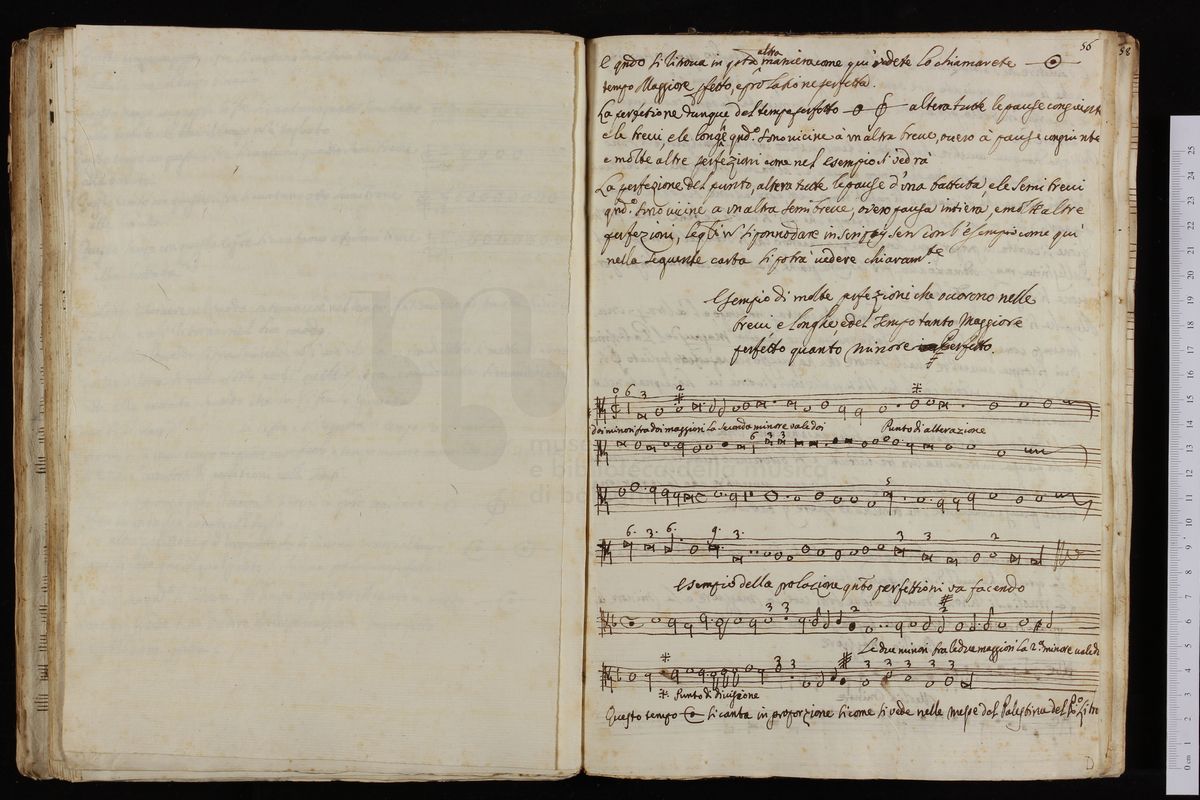 56
58
e qndo si ritrova in qsta altra maniera come qui vedete lo chiamarete
tempo Maggiore pfetto, e prolatione perfetta.
La perfetione dunque del tempo perfetto altera tutte le pause congiunte
e le brevi, e le longe qndo. sono vicine à un altra breve, overo à pause congiunte
e molte altre perfezioni come nel esempio si vedrà
La perfezione del punto, altera tutte le pause d'una battuta e le semibrevi
qndo. sono vicine a un altra semibreve, overo pausa intiera, e molte altre
perfezioni, le qli nõ si ponno dare in scrip come qui
nella seguente carta si potrà vedere chiaramte.
Esempio di molte pfezioni che occorono nelle
brevi e longhe, e del tempo tanto Maggiore
perfetto quanto minore perfetto.
6 3 2
doi minori fra doi maggiori la seconda minore vale doi
Punto di alteratione
6 3
5
6. 3. 6. 9. 3. 3 3 2
Esempio della prolazione qnto perfettioni va facendo
3 3 2 2
Le due minori fra le due maggiori la 2a minore vale doi
3 3 3 3 3 3 3
Punto di divisione
Questo tempo si canta in proporzione si come si vede nelle messe del Palestina del Po. Libro
D
museo
e biblioteca della musica
di bo
0 cm 1 2 3 4 5 6 7 8 9 10 11 12 13 14 15 16 17 18 19 20 21 22 23 24 25